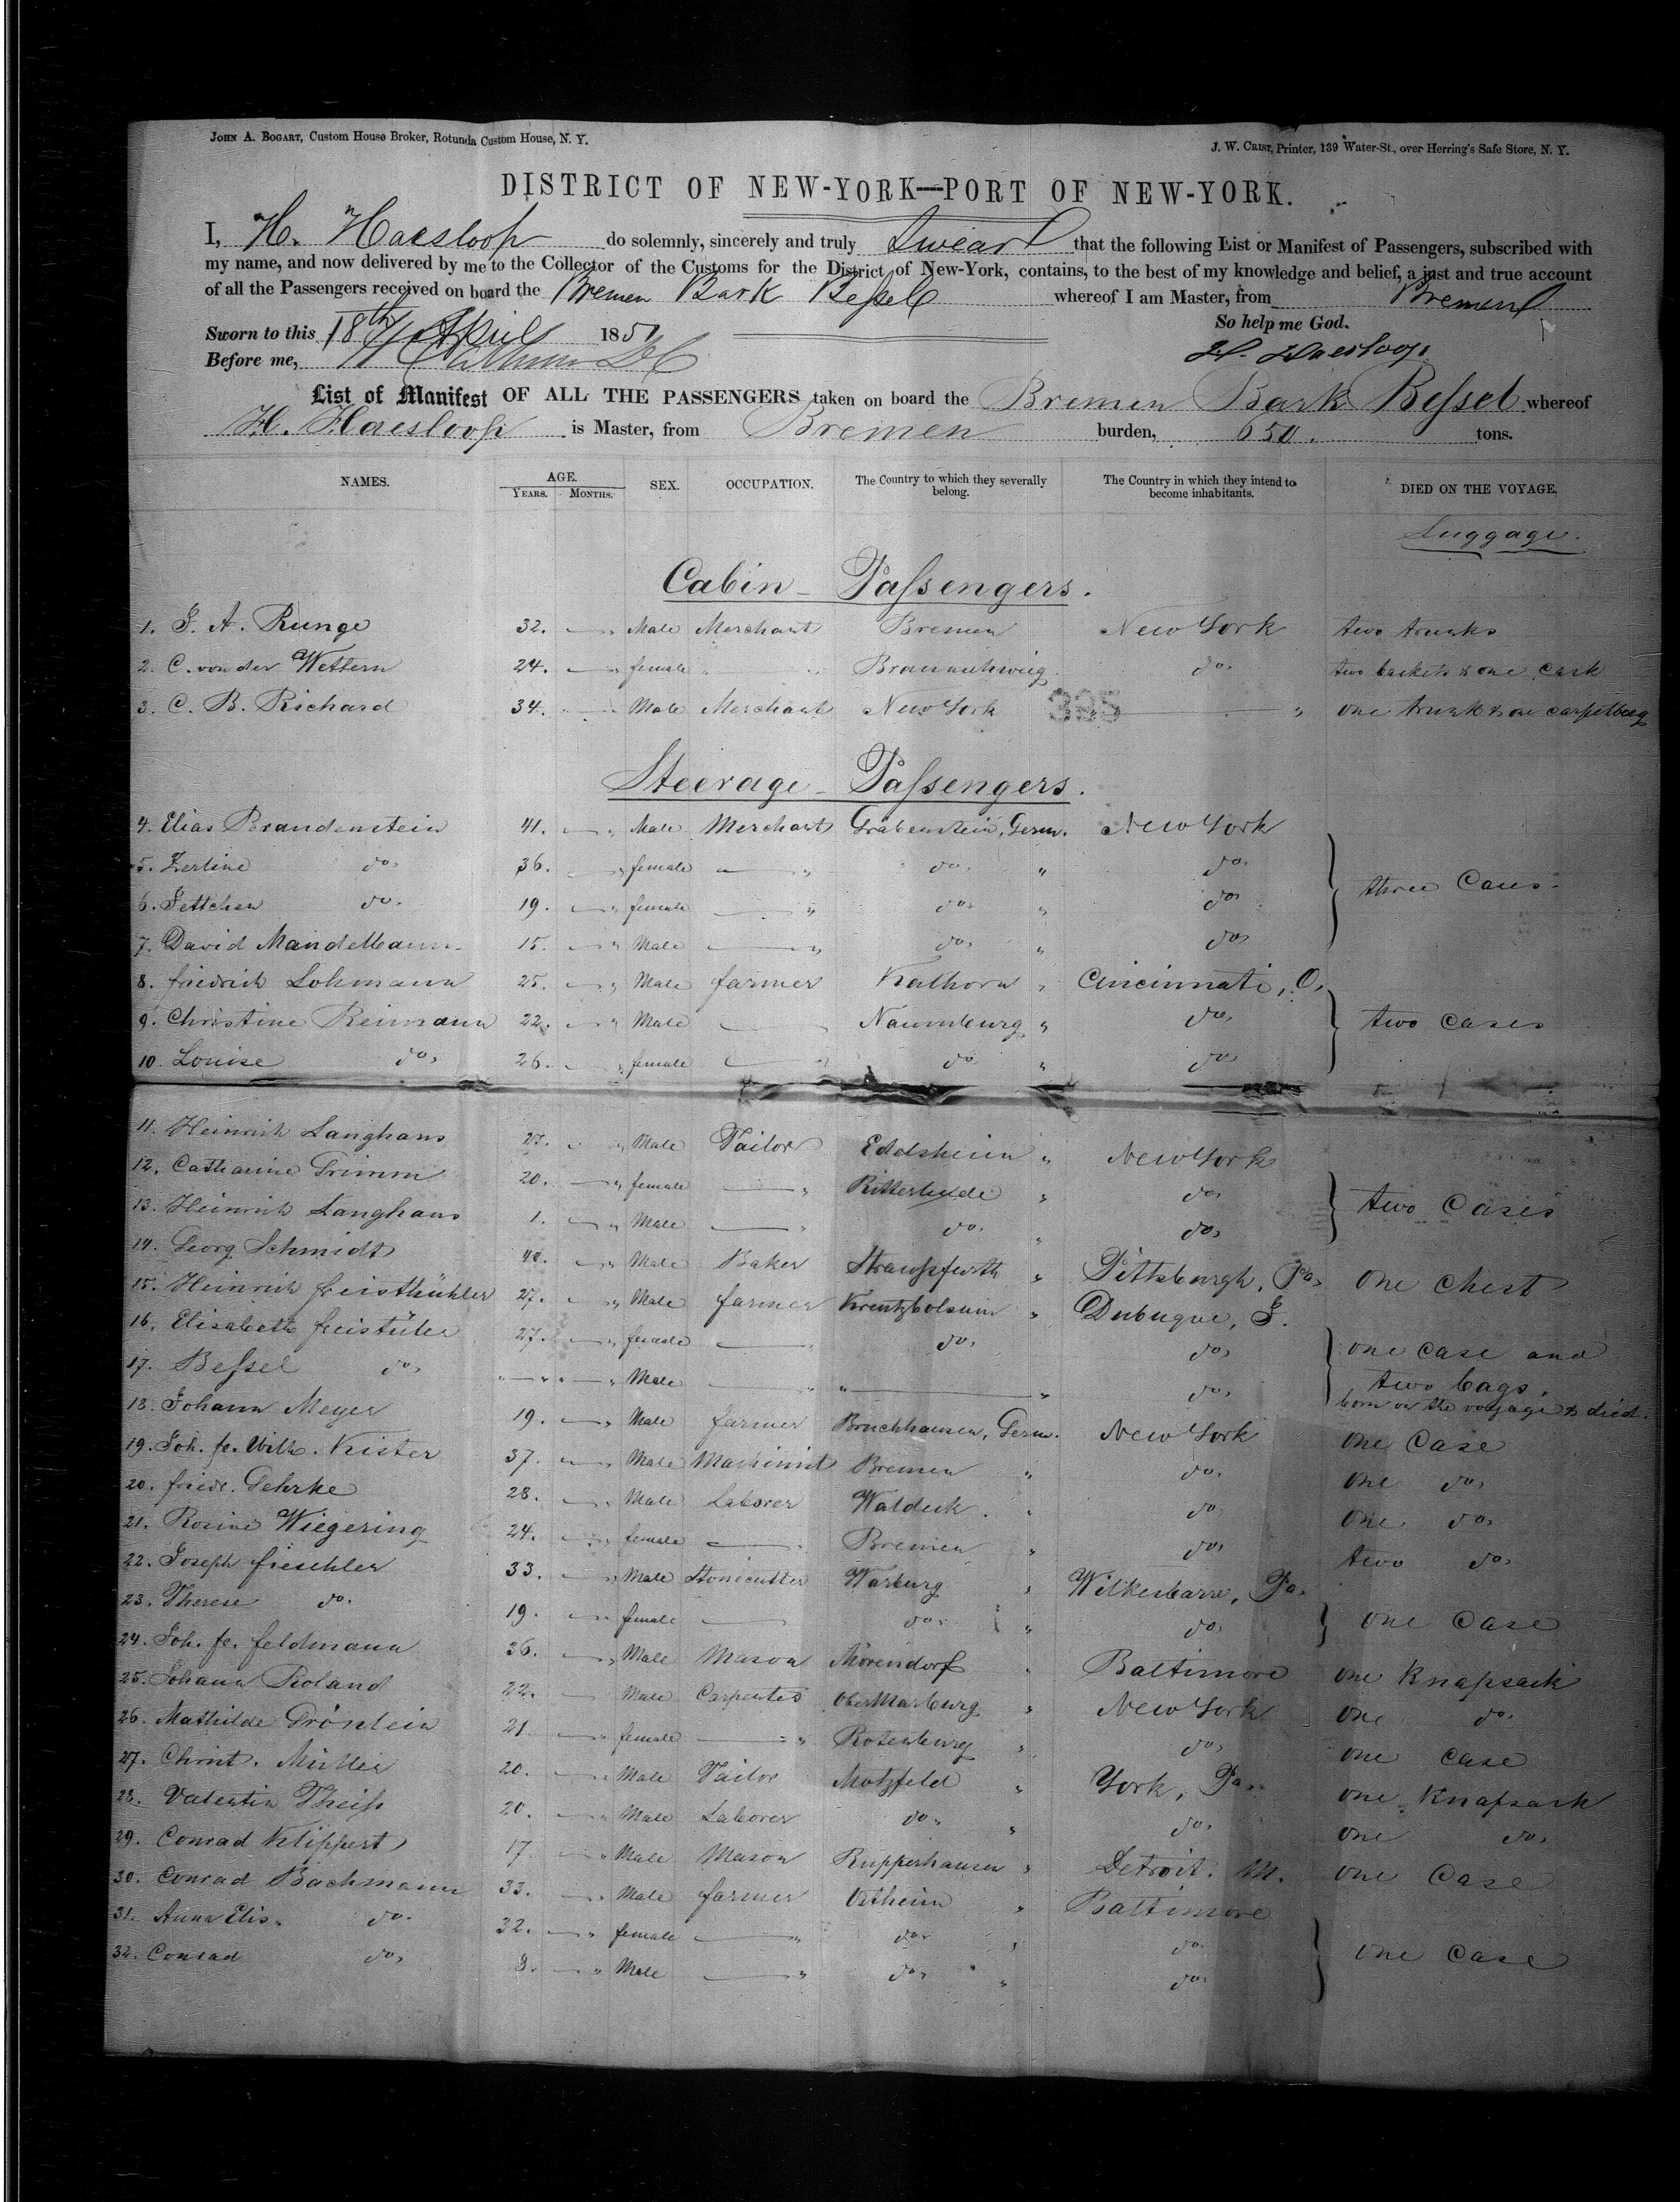 JOHN A. BOGART, Custom House Broker, Rotunda Custom House, N. Y.
J. W. CRIST, Printer, 139 Water-St., over Herring's Safe Store, N. Y.
DISTRICT OF NEW-YORK—PORT OF NEW-YORK.
I, H. Haesloop do solemnly, sincerely and truly Swear that the following List or Manifest of Passengers, subscribed with
my name, and now delivered by me to the Collector of the Customs for the District of New-York, contains, to the best of my knowledge and belief, a just and true account
of all the Passengers received on board the Bremen Bark Beſsel whereof I am Master, from Bremen
So help me God.
Sworn to this 18th April 1851
Before me, H. Haesloop
List of Manifest OF ALL THE PASSENGERS taken on board the Bremen Bark Beſsel whereof
H. Haesloop is Master, from Bremen burden, 650. tons.
NAMES. AGE. SEX. OCCUPATION. The Country to which they severally belong. The Country in which they intend to become inhabitants. DIED ON THE VOYAGE.
YEARS. MONTHS.
Luggage.
Cabin - Paſsengers.
1. J. A. Runge 32. " Male Merchant Bremen New York two trunks
2. C. von der Wettern 24. " female " Braunschweig do. two baskets & one cask
3. C. B. Richard 34. " Male Merchant New York 395 " one trunk & one carpetbag
Steerage - Paſsengers.
4. Elias Brandenstein 41. " Male Merchant Grabenstein, Germ. New York
5. Zerline do. 36. " female " do. " do.
three Cases.
6. Jettchen do. 19. " female " do. " do.
7. David Mandelbaum 15. " Male " do. " do.
8. friedrich Lohmann 25. " Male farmer Kalhorn " Cincinnati, O.
9. Christine Reimann 22. " Male Naumburg " do. two cases
10. Louise do. 26. " female " do. " do.
11. Heinrich Langhans 27. " Male Tailor Edelsheim " New York
12. Catharine Grimm 20. " female " Ritterhude " do. two Cases
13. Heinrich Langhans 1. " Male " do. " do.
14. Georg Schmidt 40. " Male Baker Strausfurth " Pittsburgh, Pa. one chest
15. Heinrich freisthühler 27. " Male farmer Kreutzbolsum " Dubuque, J.
16. Elisabeth freistüler 27. " female " do. do. one case and
17. Beſsel do. " " " " Male " " " do. two bags.
born on the voyage & died.
18. Johann Meyer 19. " Male farmer Bruchhausen, Germ. New York one Case
19. Joh. fr. Wilh. Kister 37. " Male Machinist Bremen " do. one do.
20. friedr. Gehrke 28. " Male Laborer Waldeck " do. one do.
21. Rosine Wiegering 24. " female " Bremen " do. two do.
22. Joseph fieschler 33. " Male Stonecutter Warburg " Wilkesbarre, Pa.
23. Therese do. 19. " female do. " do. one Case
24. Joh. fr. feldmann 36. " Male Mason Mörendorf " Baltimore one Knapsack
25. Johann Roland 22. " Male Carpenter Ober Marburg " New York one do.
26. Mathilde Grönlein 21. " female " Rotenburg " do. one case
27. Christ. Müller 20. " Male Tailor Motzfeld " York, Pa. one Knapsack
28. Valentin Theiſs 20. " Male Laborer do. " do. one do.
29. Conrad Klippert 17. " Male Mason Rupperhausen " Detroit. M. one Case
30. Conrad Bachmann 33. " Male farmer Ostheim " Baltimore
31. Anna Elis. do. 32. " female " do. " do. one Case
32. Conrad do. 8. " Male " do. " do.